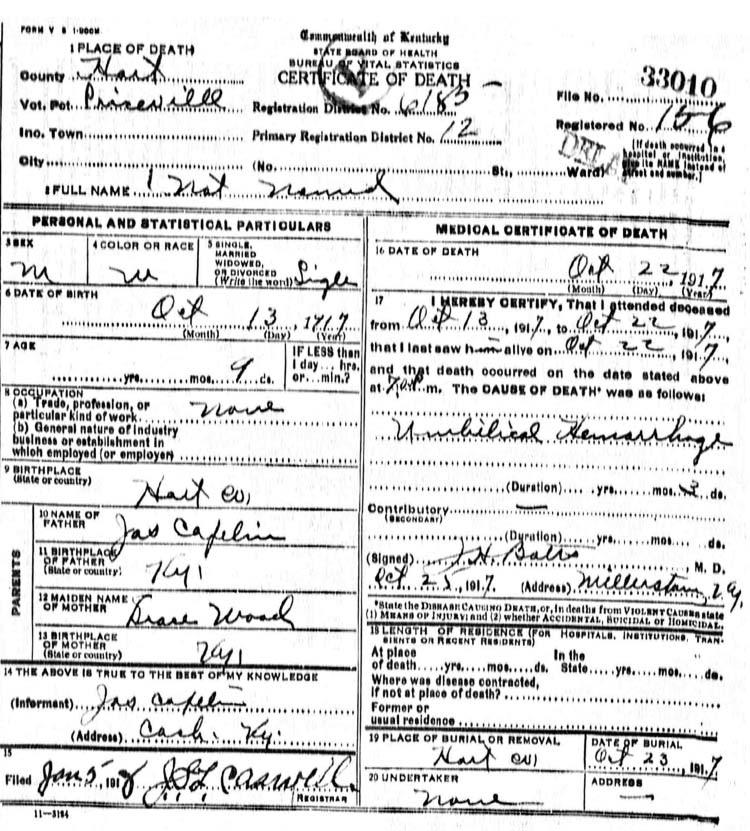 FORM V S 1-200M
Commonwealth of Kentucky
STATE BOARD OF HEALTH
BUREAU OF VITAL STATISTICS
CERTIFICATE OF DEATH
1 PLACE OF DEATH
County Hart
Vot. Pct. Priceville
Registration District No. 6183
Ino. Town
Primary Registration District No. 12
City (No. St., Ward)
File No. 33010
Registered No. 156
[If death occurred in a hospital or institution, give its NAME instead of street and number.]
2 FULL NAME Not Named
PERSONAL AND STATISTICAL PARTICULARS
3 SEX M
4 COLOR OR RACE W
5 SINGLE, MARRIED WIDOWED, OR DIVORCED (Write the word) Single
6 DATE OF BIRTH
Oct 13, 1917
(Month) (Day) (Year)
7 AGE
yrs. mos. 9 ds.
IF LESS than 1 day... hrs. or... min.?
8 OCCUPATION
(a) Trade, profession, or particular kind of work none
(b) General nature of industry
business or establishment in
which employed (or employer)
9 BIRTHPLACE
(State or country)
Hart co,
PARENTS
10 NAME OF FATHER Jas
11 BIRTHPLACE OF FATHER (State or country) Ky,
12 MAIDEN NAME OF MOTHER Wood
13 BIRTHPLACE OF MOTHER (State or country) Ky,
14 THE ABOVE IS TRUE TO THE BEST OF MY KNOWLEDGE
(Informant) Jas
(Address) Cash. Ky.
15
Filed Jan 5, 1918 Caswell
REGISTRAR
11-3184
MEDICAL CERTIFICATE OF DEATH
16 DATE OF DEATH
Oct 22, 1917
(Month) (Day) (Year)
17 I HEREBY CERTIFY, That I attended deceased
from Oct 13, 1917, to Oct 22, 1917,
that I last saw him alive on Oct 22, 1917,
and that death occurred on the date stated above
at m. The CAUSE OF DEATH* was as follows:
Umbilical Hemorrhage
(Duration) yrs. mos. 3 ds.
Contributory —
(SECONDARY)
(Duration) yrs. mos. ds.
(Signed) M. D.
Oct 25, 1917. (Address) Millerstown, Ky.
*State the DISEASE CAUSING DEATH, or, in deaths from VIOLENT CAUSES state
(1) MEANS OF INJURY; and (2) whether ACCIDENTAL, SUICIDAL OR HOMICIDAL.
18 LENGTH OF RESIDENCE (FOR HOSPITALS, INSTITUTIONS, TRANSIENTS OR RECENT RESIDENTS)
At place of death yrs. mos. ds. In the State yrs. mos. ds.
Where was disease contracted,
if not at place of death?
Former or
usual residence
19 PLACE OF BURIAL OR REMOVAL
Hart co,
DATE OF BURIAL
Oct 23, 1917
20 UNDERTAKER
none
ADDRESS
—